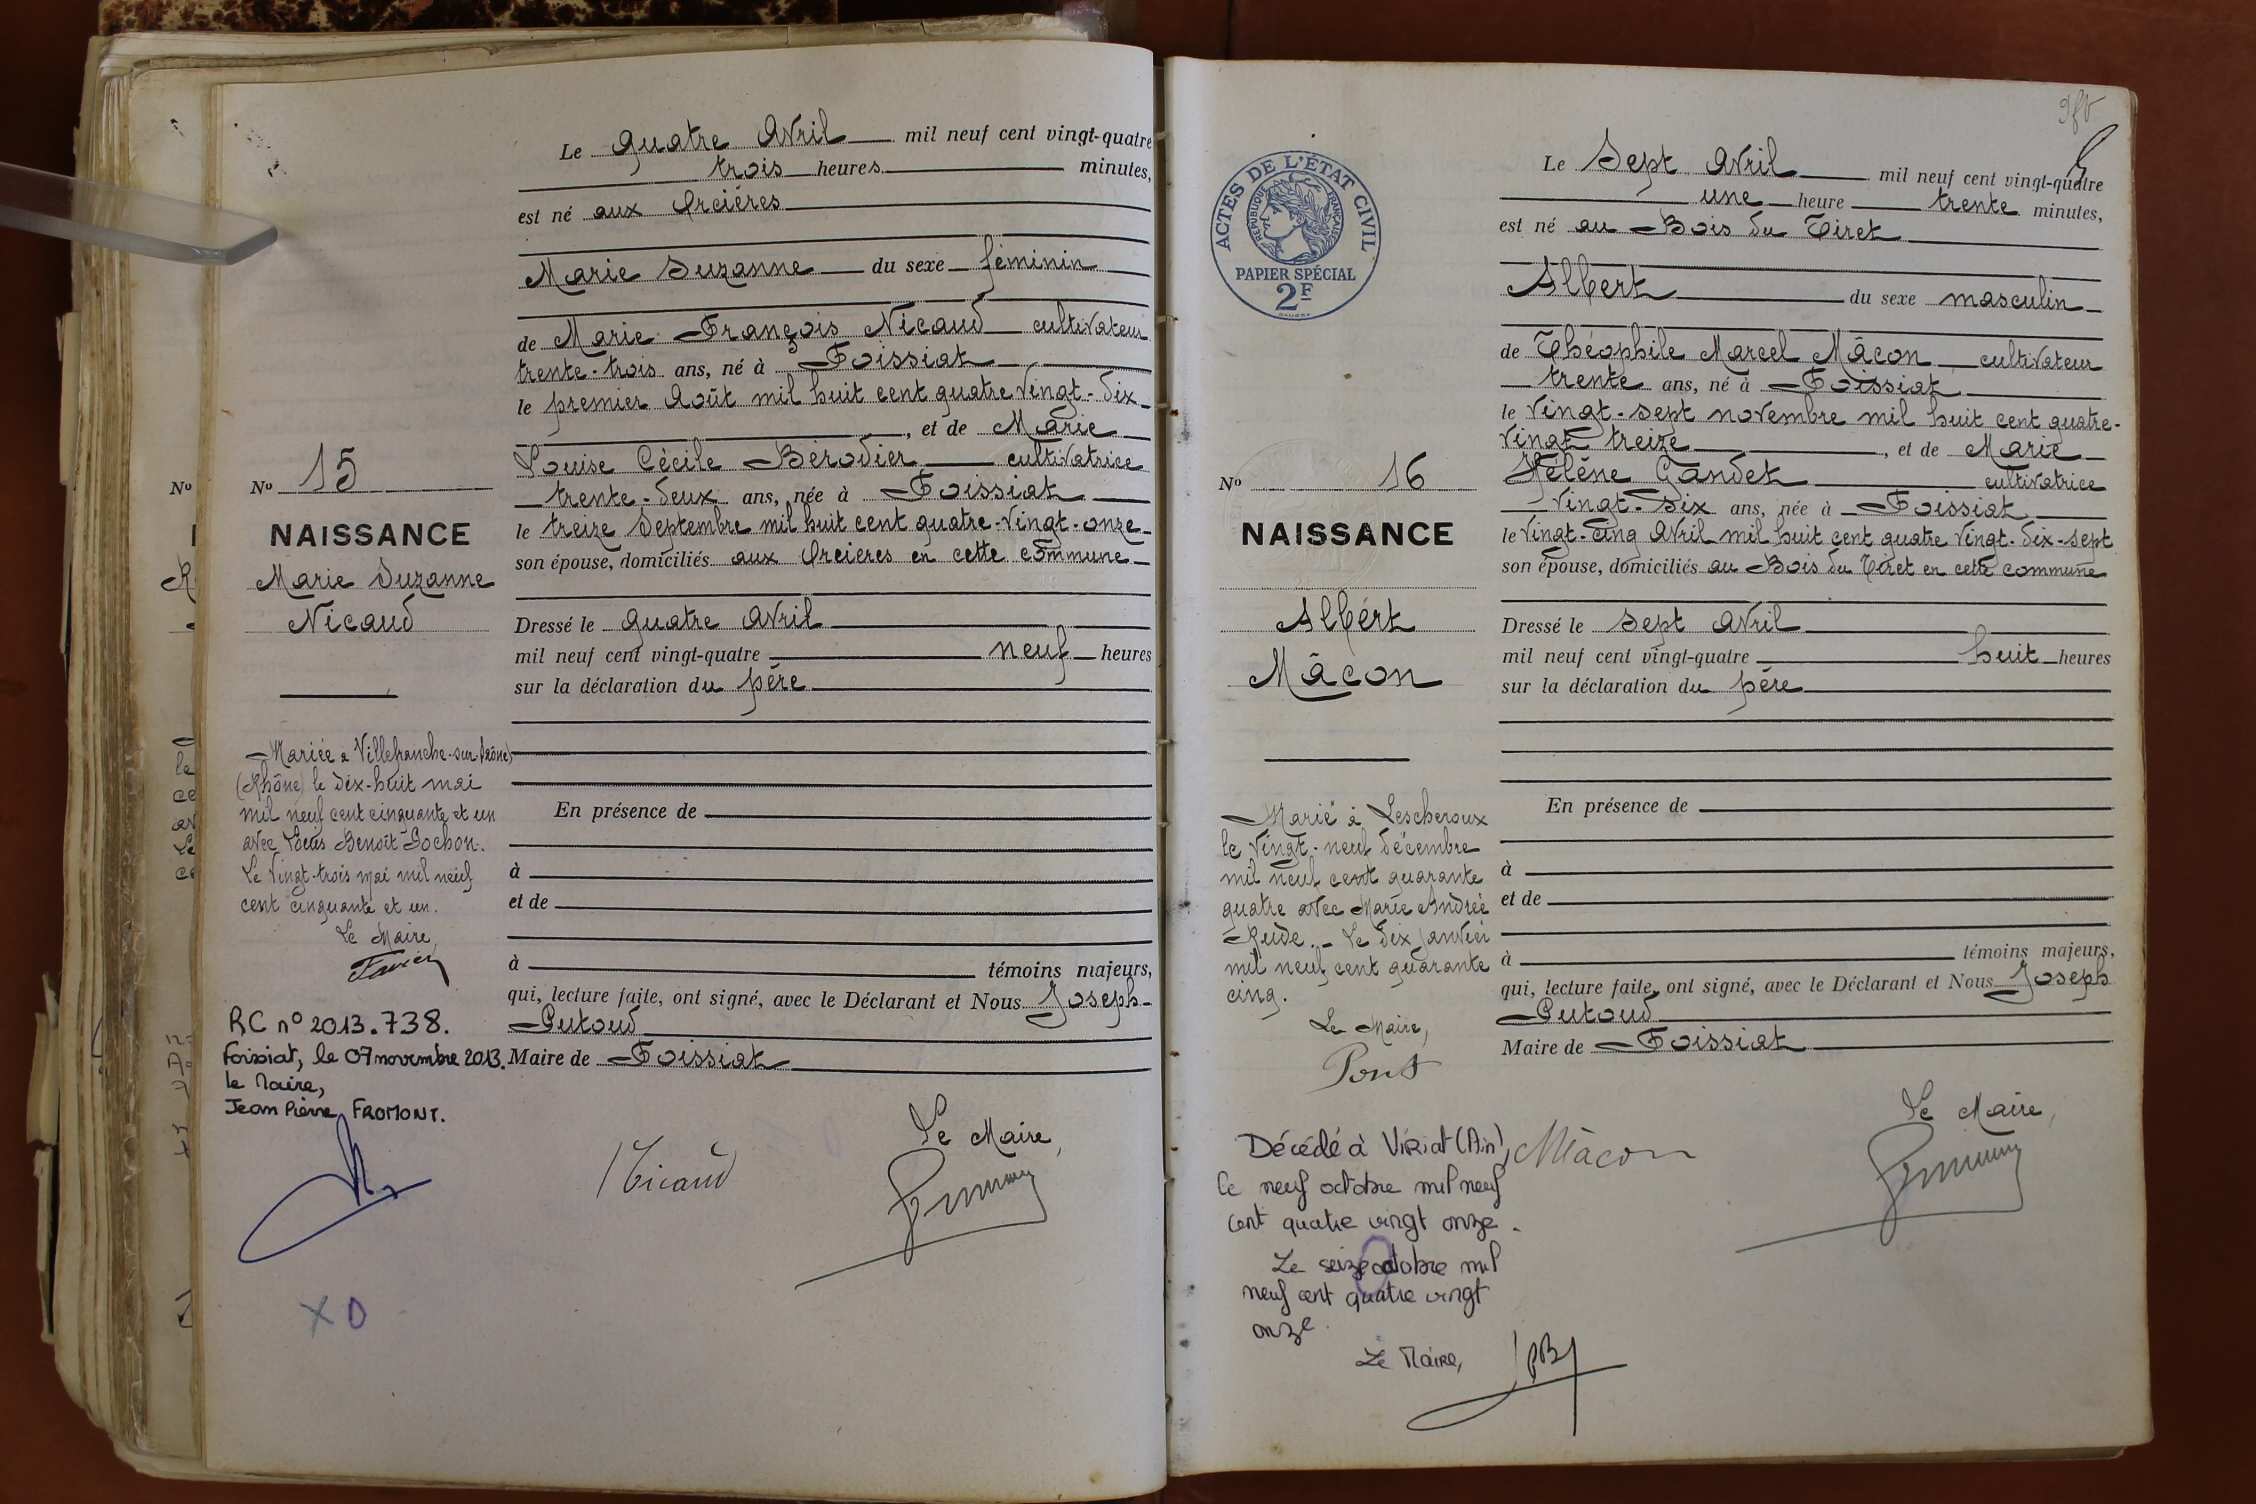 Le quatre Avril mil neuf cent vingt-quatre
trois heures minutes,
est né aux Orcières
Marie Suzanne du sexe féminin
de Marie François Nicaud cultivateur
trente-trois ans, né à Foissiat
le premier Août mil huit cent quatre vingt-dix
, et de Marie
Louise Cécile Bérodier cultivatrice
trente-deux ans, née à Foissiat
le treize Septembre mil huit cent quatre-vingt-onze
son épouse, domiciliés aux Orcières en cette commune
Dressé le quatre Avril
mil neuf cent vingt-quatre neuf heures
sur la déclaration du père
En présence de
à
et de
à témoins majeurs,
qui, lecture faite, ont signé, avec le Déclarant et Nous Joseph
Putoud
Maire de Foissiat
Le Maire,
Nicaud
No 15
NAISSANCE
Marie Suzanne
Nicaud
Mariée à Villefranche-sur-Saône
(Rhône) le dix-huit mai
mil neuf cent cinquante et un
avec Benoît Gochon.
Le vingt-trois mai mil neuf
cent cinquante et un.
Le Maire,
RC n° 2013.738.
Foissiat, le 07 novembre 2013.
le Maire,
Jean Pierre FROMONT.
X O
No
ACTES DE L'ÉTAT CIVIL
RÉPUBLIQUE FRANÇAISE
PAPIER SPÉCIAL
2F
Le Sept Avril mil neuf cent vingt-quatre
une heure trente minutes,
est né au Bois du Tiret
Albert du sexe masculin
de Théophile Marcel Mâcon cultivateur
trente ans, né à Foissiat
le vingt-sept novembre mil huit cent quatre-
vingt treize , et de Marie
Hélène Gandet cultivatrice
vingt-six ans, née à Foissiat
le vingt-cinq Avril mil huit cent quatre vingt-dix-sept
son épouse, domiciliés au Bois du Tiret en cette commune
Dressé le sept Avril
mil neuf cent vingt-quatre huit heures
sur la déclaration du père
En présence de
à
et de
à témoins majeurs,
qui, lecture faite, ont signé, avec le Déclarant et Nous Joseph
Putoud
Maire de Foissiat
Le Maire,
Mâcon
No 16
NAISSANCE
Albert
Mâcon
Marié à Lescheroux
le vingt-neuf décembre
mil neuf cent quarante
quatre avec Marie Andrée
Rude. Le dix janvier
mil neuf cent quarante
cinq.
Le Maire,
Pont
Décédé à Viriat (Ain),
le neuf octobre mil neuf
cent quatre vingt onze.
Le seize octobre mil
neuf cent quatre vingt
onze.
Le Maire,